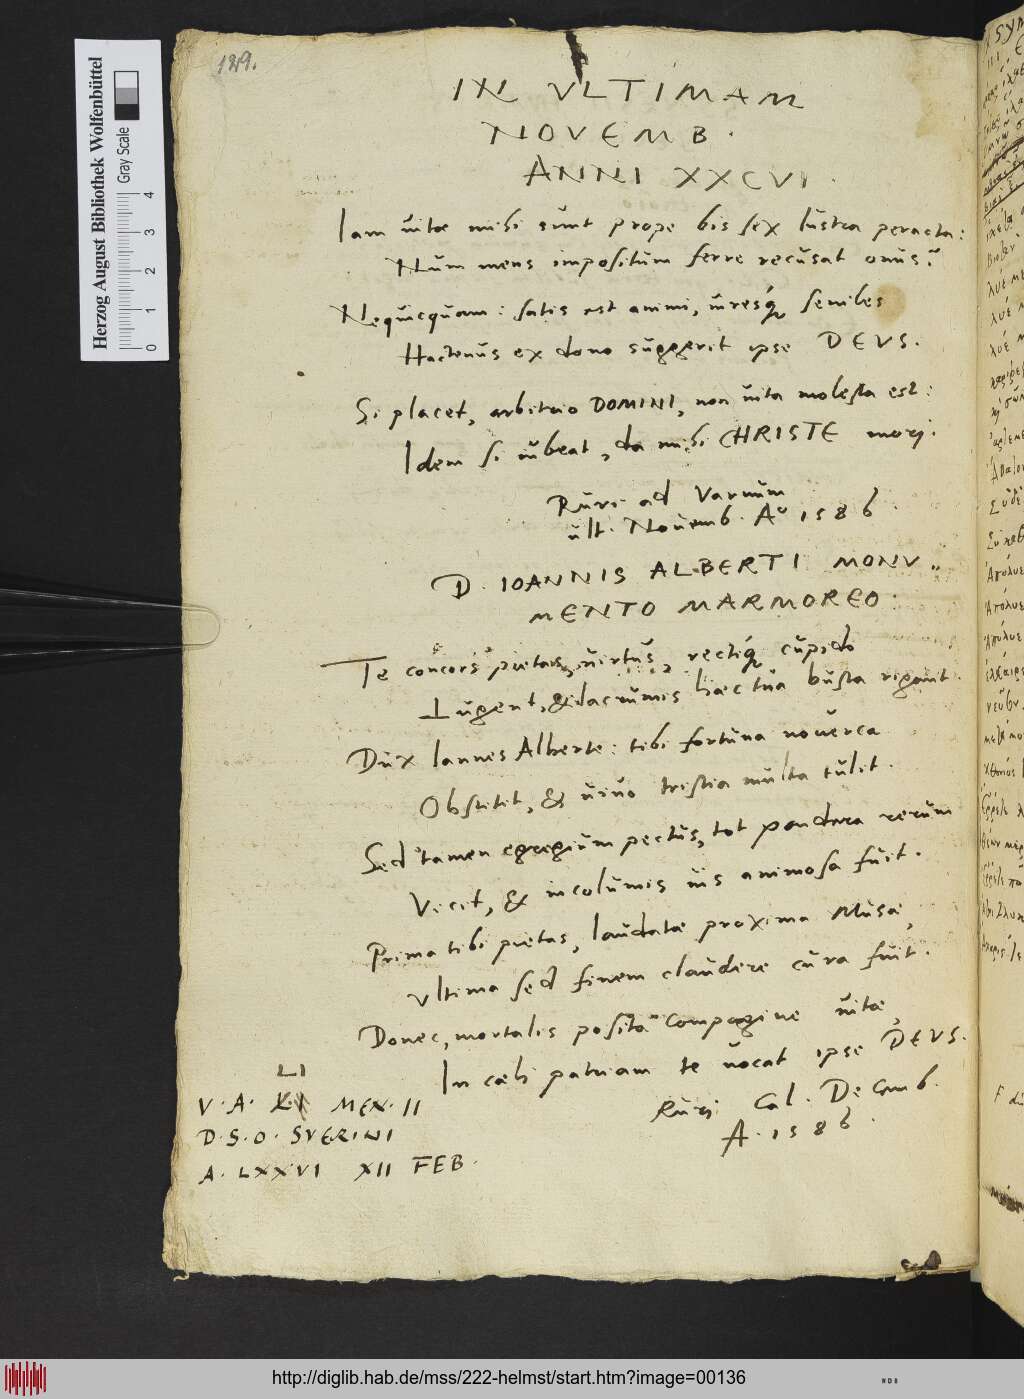 129.
IN VLTIMAM
NOVEMB.
ANNI XXCVI.
Iam uitae mihi sunt prope bis sex lustra peracta:
Num mens impositum ferre recusat onus?
Nequicquam: satis est animi, uiresq́ seniles
Hactenus ex dono suggerit ipse DEVS.
Si placet, arbitrio DOMINI, non uita molesta est:
Idem si iubeat, da mihi CHRISTE mori.
Ruri ad Varnum
ult. Nouemb. Aº 1586.
D. IOANNIS ALBERTI MONV..
MENTO MARMOREO.
Te concors pietas, uirtus, rectiq́ cupido
Lugent, & lacrumis haec tua busta rigant.
Dux Iannes Alberte: tibi fortuna nouerca
Obstitit, & uiuo tristia multa tulit.
Sed tamen egregium pectus, tot pondera rerum
Vicit, & incolumis uis animosa fuit.
Prima tibi pietas, laudatae proxima Musae,
Vltima sed finem claudere cura fuit.
Donec, mortalis posita compagine uitae,
In caeli patriam te uocat ipse DEVS.
Ruri Cal. Decemb.
A. 1586.
LI
V. A. MEN. II
D. S. O. SVERINI
A. LXXVI XII FEB.
Herzog August Bibliothek Wolfenbüttel
Gray Scale
0 1 2 3 4
http://diglib.hab.de/mss/222-helmst/start.htm?image=00136